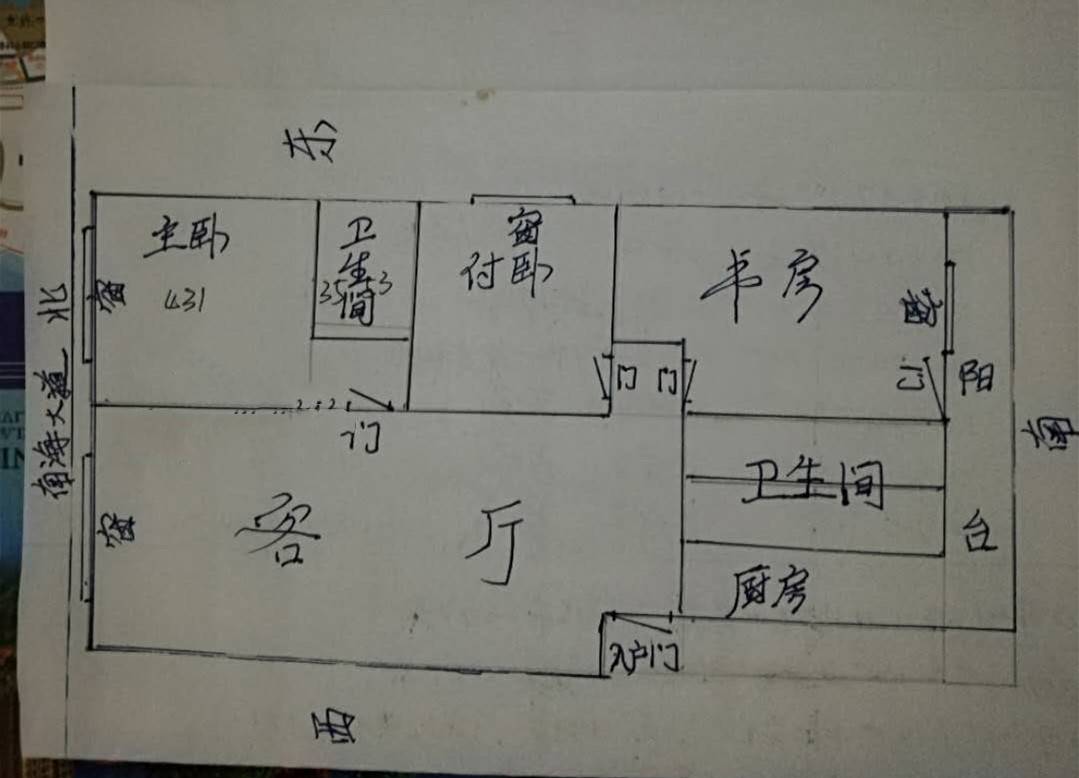 东
主卧
431
卫生间
35
53
窗
付卧
书房
窗
北
南海大道
窗
门
门
门
门
阳台
南
门
客厅
卫生间
窗
厨房
入户门
西